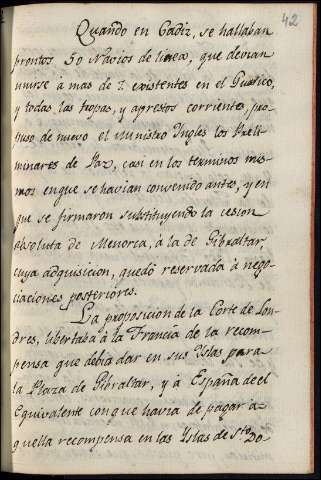 42
Quando en Cadiz, se hallaban
prontos 50 Navios de linea, que devian
unirse à mas de 7 existentes en el Guarico,
y todas las tropas, y aprestos corrientes, pro
puso de nuevo el Ministro Yngles los Preli-
minares de Paz, casi en los terminos mis-
mos en que se havian convenido antes, y en
que se firmaron substituyendo la cesion
absoluta de Menorca, à la de Gibraltar,
cuya adquisicion, quedó reservada à nego-
ciaciones posteriores.
La proposicion de la Corte de Lon
dres, libertaba à la Francia de la recom-
pensa que debia dar en sus Yslas para
la Plaza de Gibraltar, y à España de el
equivalente con que havia de pagar a-
quella recompensa en las Yslas de Sto. Do